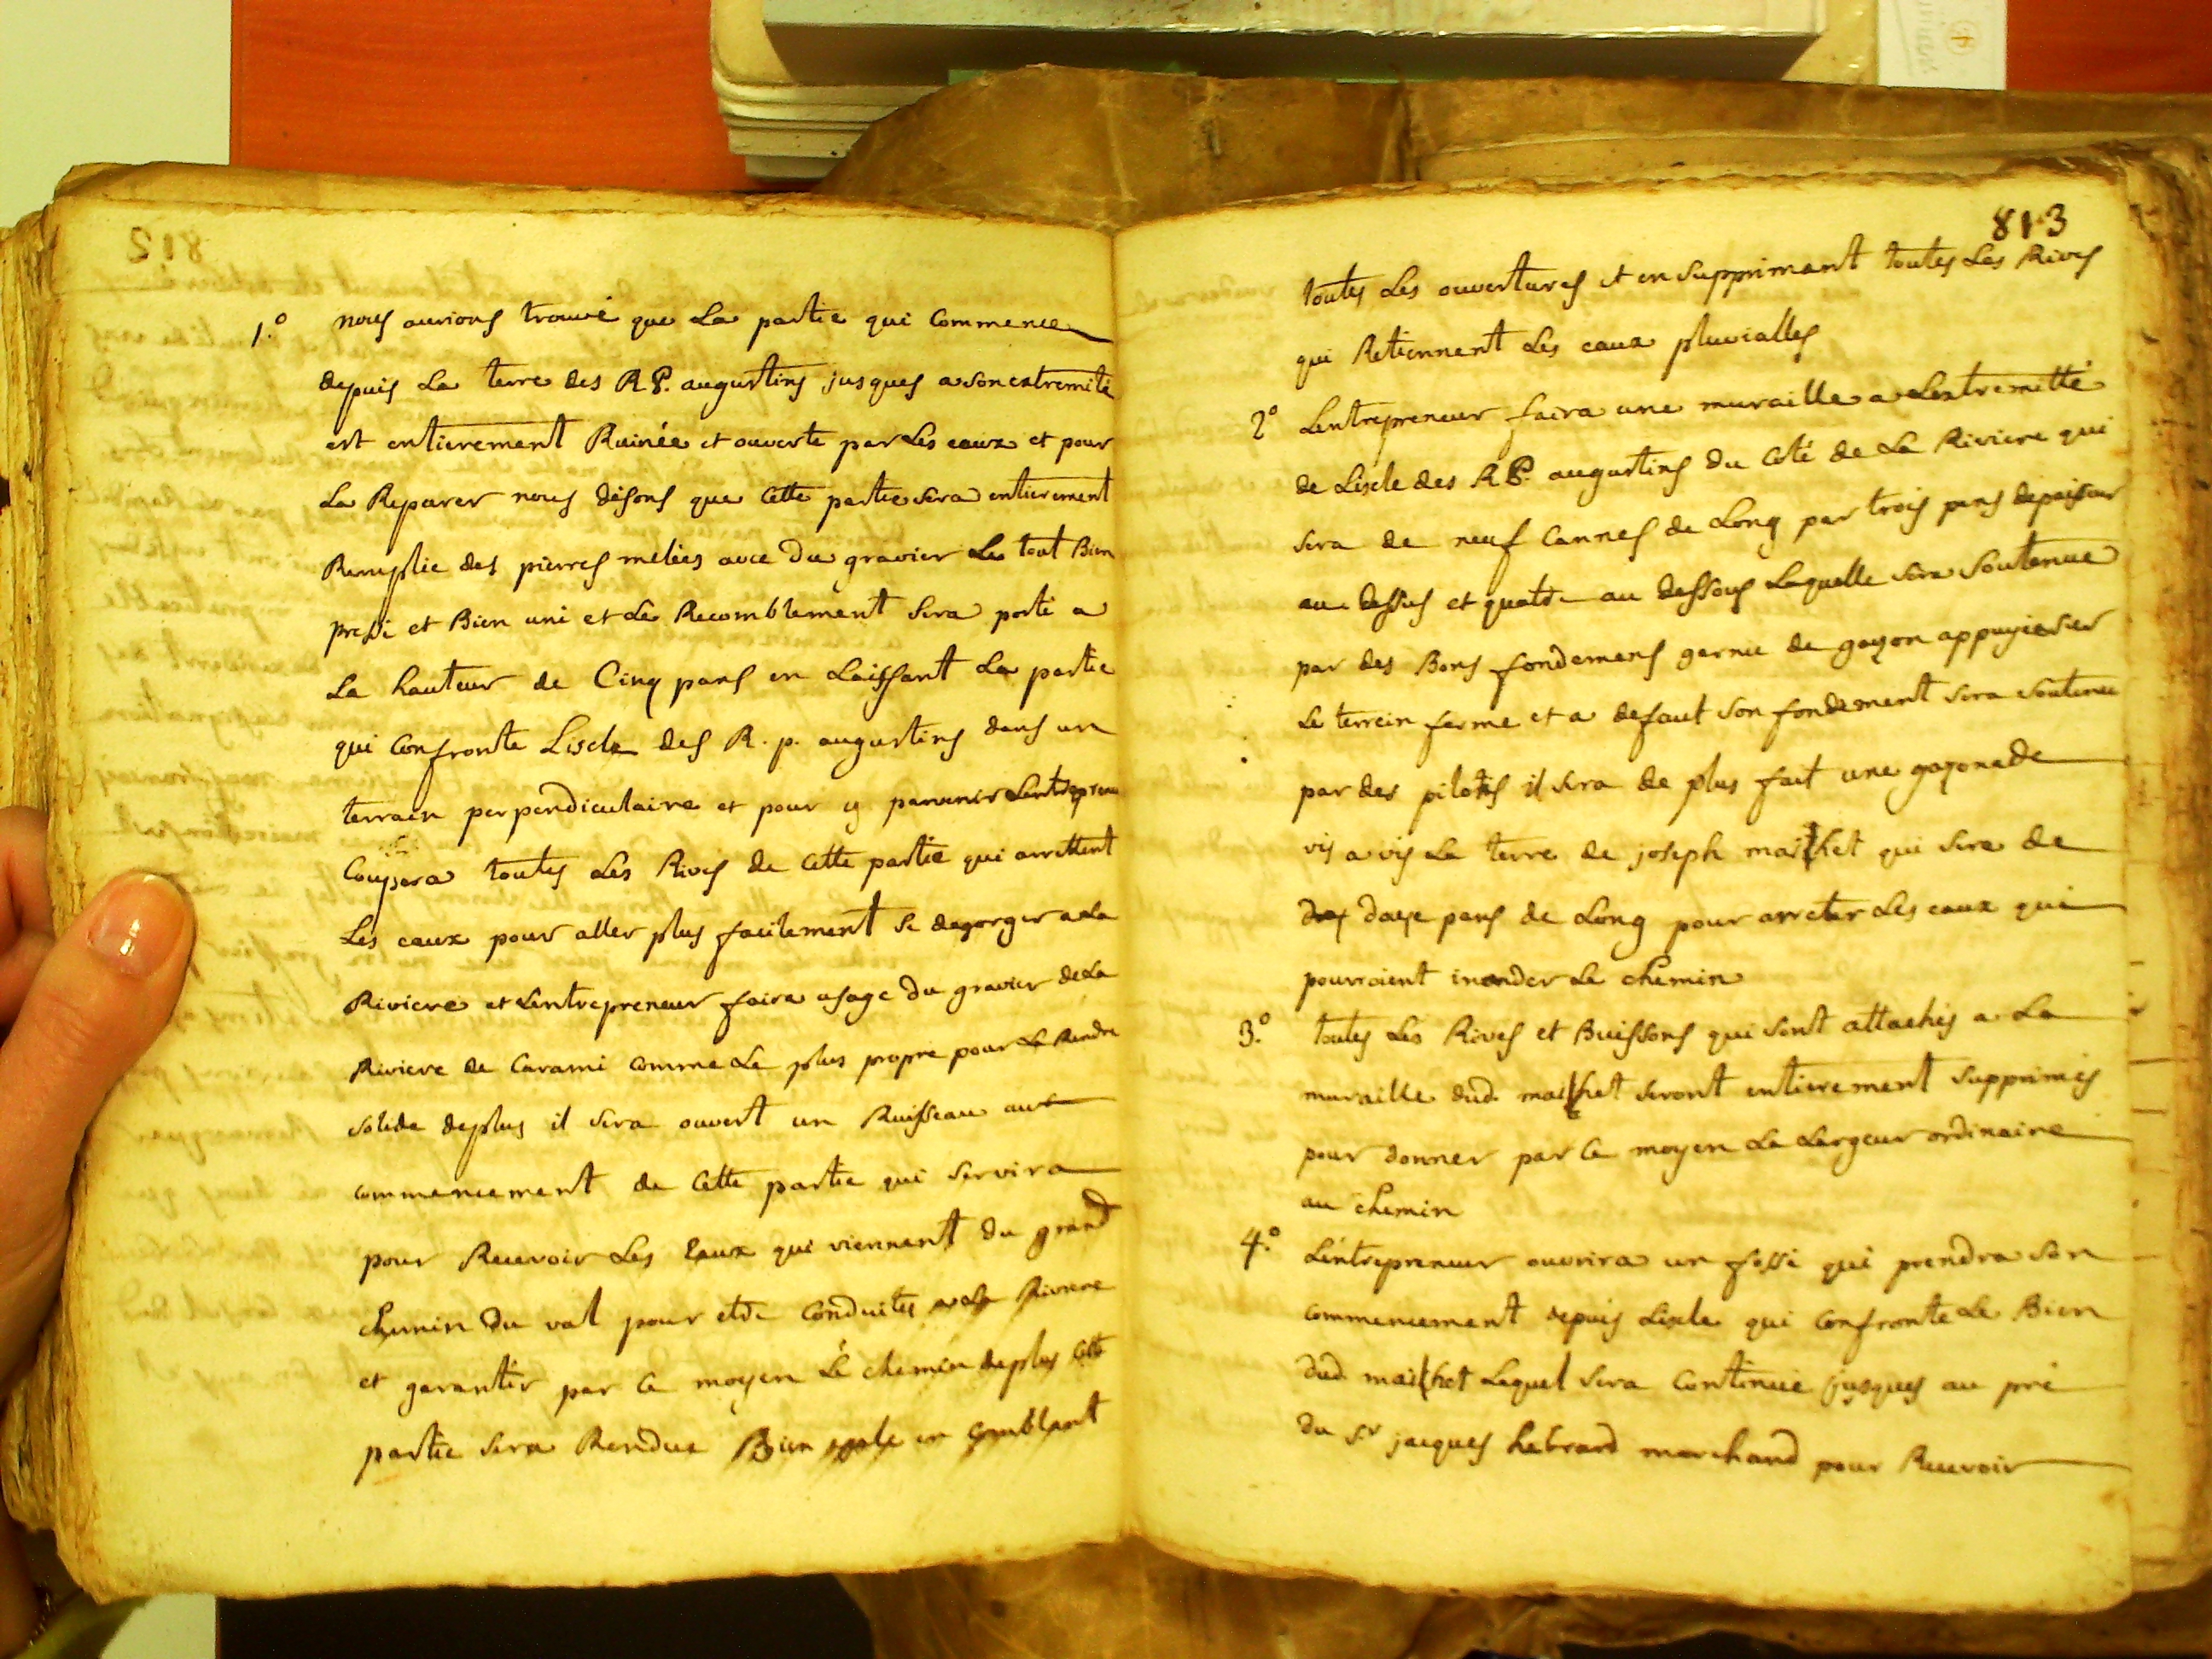 1.° nous aurions trouvé que La partie qui Commence
depuis La terre des R P. augustins jusques a son extremité
est entierement Ruinée et ouverte par Les eaux et pour
La Reparer nous disons que Cette partie sera entierement
Remplie des pierres melées avec du gravier Le tout Bien
pressé et Bien uni et Le Recomblement Sera porté a
La hauteur de Cinq pans en Laissant La partie
qui Confronte Liscle des R. p. augustins dans un
terrain perpendiculaire et pour y parvenir Lentrepreneur
Coupera toutes Les Rives de Cette partie qui arrettent
Les eaux pour aller plus facilement Se degorger a La
Riviere et Lentrepreneur faira usage du gravier de La
Riviere de Carami Comme Le plus propre pour Le Rendre
solide deplus il Sera ouvert un Ruisseau au
commencement de Cette partie qui Servira
pour Recevoir Les Eaux qui viennent du grand
chemin du val pour etre Conduites a La Riviere
et garantir par Ce moyen Le chemin deplus Cette
partie Sera Rendue Bien egale en Comblant
813
toutes Les ouvertures et en Supprimant toutes Les Rives
qui Retiennent Les eaux pluvialles
2° Lentrepreneur faira une muraille a Lextremitté
de Liscle des R P. augustins du Coté de La Riviere qui
Sera de neuf Cannes de Long par trois pans depaisseur
au dessus et quatre au dessous Laquelle Sera Soutenue
par des Bons fondemens garnie de gazon appuyée Sur
Le terrein ferme et a defaut Son fondement Sera Soutenu
par des pilotis il Sera de plus fait une gazonade
vis a vis La terre de joseph maichet qui Sera de
douze pans de Long pour arreter Les eaux qui
pourroient inonder Le chemin
3.° toutes Les Rives et Buissons qui Sont attachés a La
muraille dud. maichet Seront entierement Supprimés
pour donner par Ce moyen La Largeur ordinaire
au chemin
4.° Lentrepreneur ouvrira un fossé qui prendra Son
commencement depuis Liscle qui Confronte Le Bien
dud. maichet Lequel Sera Continué jusques au pré
du Sr jacques hebrard marchand pour Recevoir
812